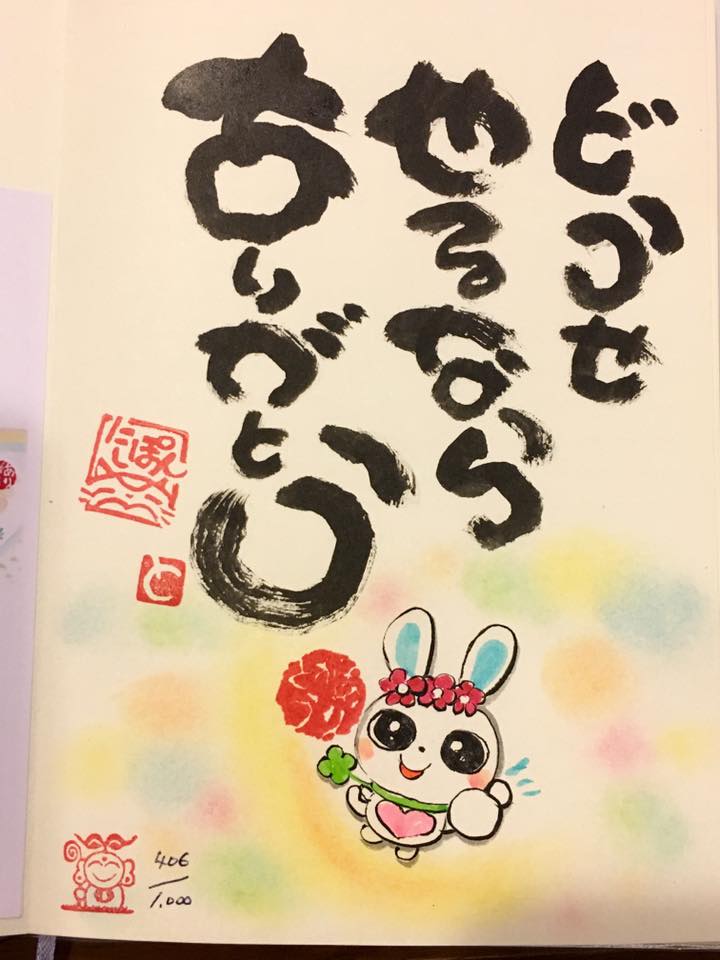 どうせ
やるなら
ありがとう
と
406
1.000